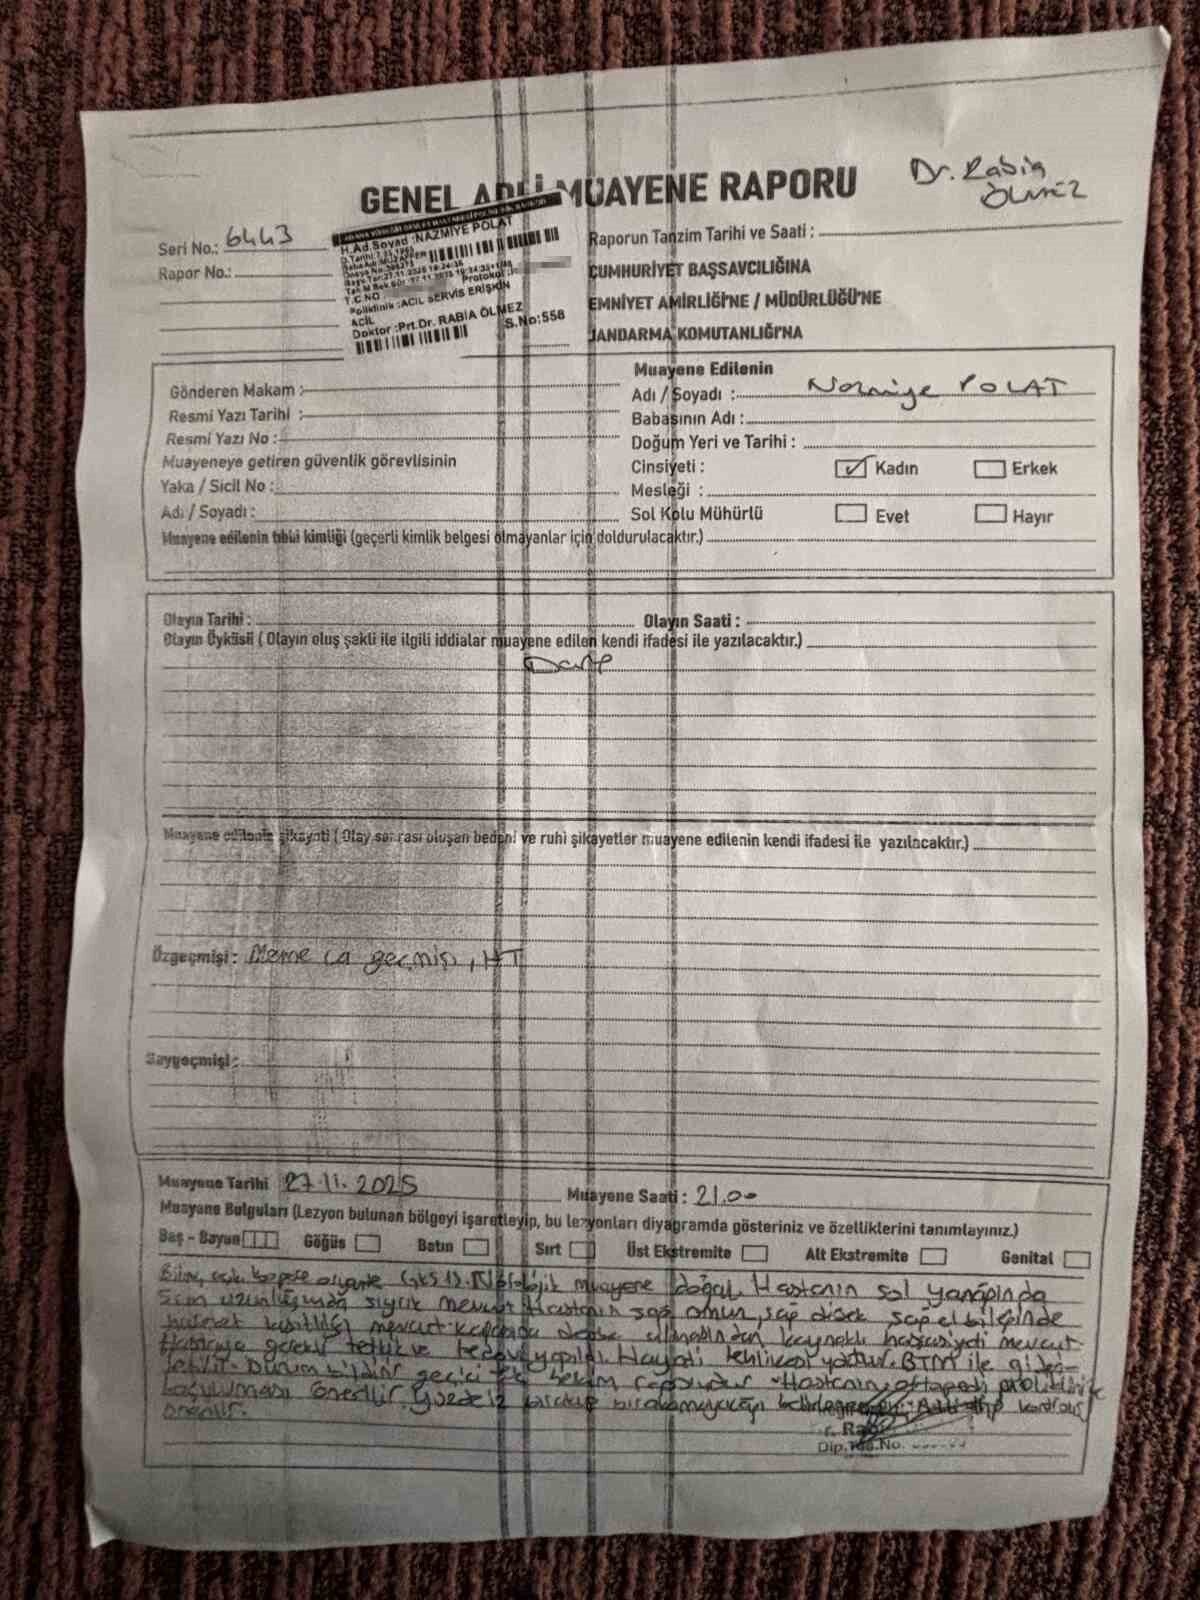 Dr. Rabia
ÖLMEZ
GENEL ADLİ MUAYENE RAPORU
Seri No.: 6443
Rapor No.:
H.Ad.Soyad :NAZMİYE POLAT
T.C.NO
Protokol
Poliklinik :ACİL SERVİS ERİŞKİN
ACİL
Doktor :Prt.Dr. RABİA ÖLMEZ
S.No:558
Raporun Tanzim Tarihi ve Saati :
CUMHURİYET BAŞSAVCILIĞINA
EMNİYET AMİRLİĞİ'NE / MÜDÜRLÜĞÜ'NE
JANDARMA KOMUTANLIĞI'NA
Gönderen Makam :
Resmi Yazı Tarihi :
Resmi Yazı No :
Muayeneye getiren güvenlik görevlisinin
Yaka / Sicil No :
Adı / Soyadı :
Muayene Edilenin
Adı / Soyadı : Nazmiye POLAT
Babasının Adı :
Doğum Yeri ve Tarihi :
Cinsiyeti : ✓ Kadın Erkek
Mesleği :
Sol Kolu Mühürlü Evet Hayır
Muayene edilenin tıbbi kimliği (geçerli kimlik belgesi olmayanlar için doldurulacaktır.)
Olayın Tarihi : Olayın Saati :
Olayın Öyküsü ( Olayın oluş şakli ile ilgili iddialar muayene edilen kendi ifadesi ile yazılacaktır.)
Darp
Muayene edilenin şikayeti ( Olay sonrası oluşan bedeni ve ruhi şikayetler muayene edilenin kendi ifadesi ile yazılacaktır.)
Özgeçmişi : Meme ca geçmişi, HT
Soygeçmişi :
Muayene Tarihi 27.11.2025 Muayene Saati : 21.00
Muayene Bulguları (Lezyon bulunan bölgeyi işaretleyip, bu lezyonları diyagramda gösteriniz ve özelliklerini tanımlayınız.)
Baş - Boyun Göğüs Batın Sırt Üst Ekstremite Alt Ekstremite Genital
Bilinç açık koopere oryante (GKS 15). Nörolojik muayene doğal. Hastanın sol yanağında
5cm uzunluğunda sıyrık mevcut. Hastanın sağ omuz, sağ dirsek, sağ el bileğinde
hareket kısıtlılığı mevcut. darbe almasından kaynaklı hassasiyeti mevcut.
Hastaya gerekli tetkik ve tedavi yapıldı. Hayati tehlikesi yoktur. BTM ile
Durum bildirir geçici hekim raporudur. Hastanın ortopedi poliklinik
başvurması önerilir. Yüzde iz bırakıp bırakmayacağı Adli tıp kontrolü
önerilir.
r. Rabi
Dip.Tes.No.